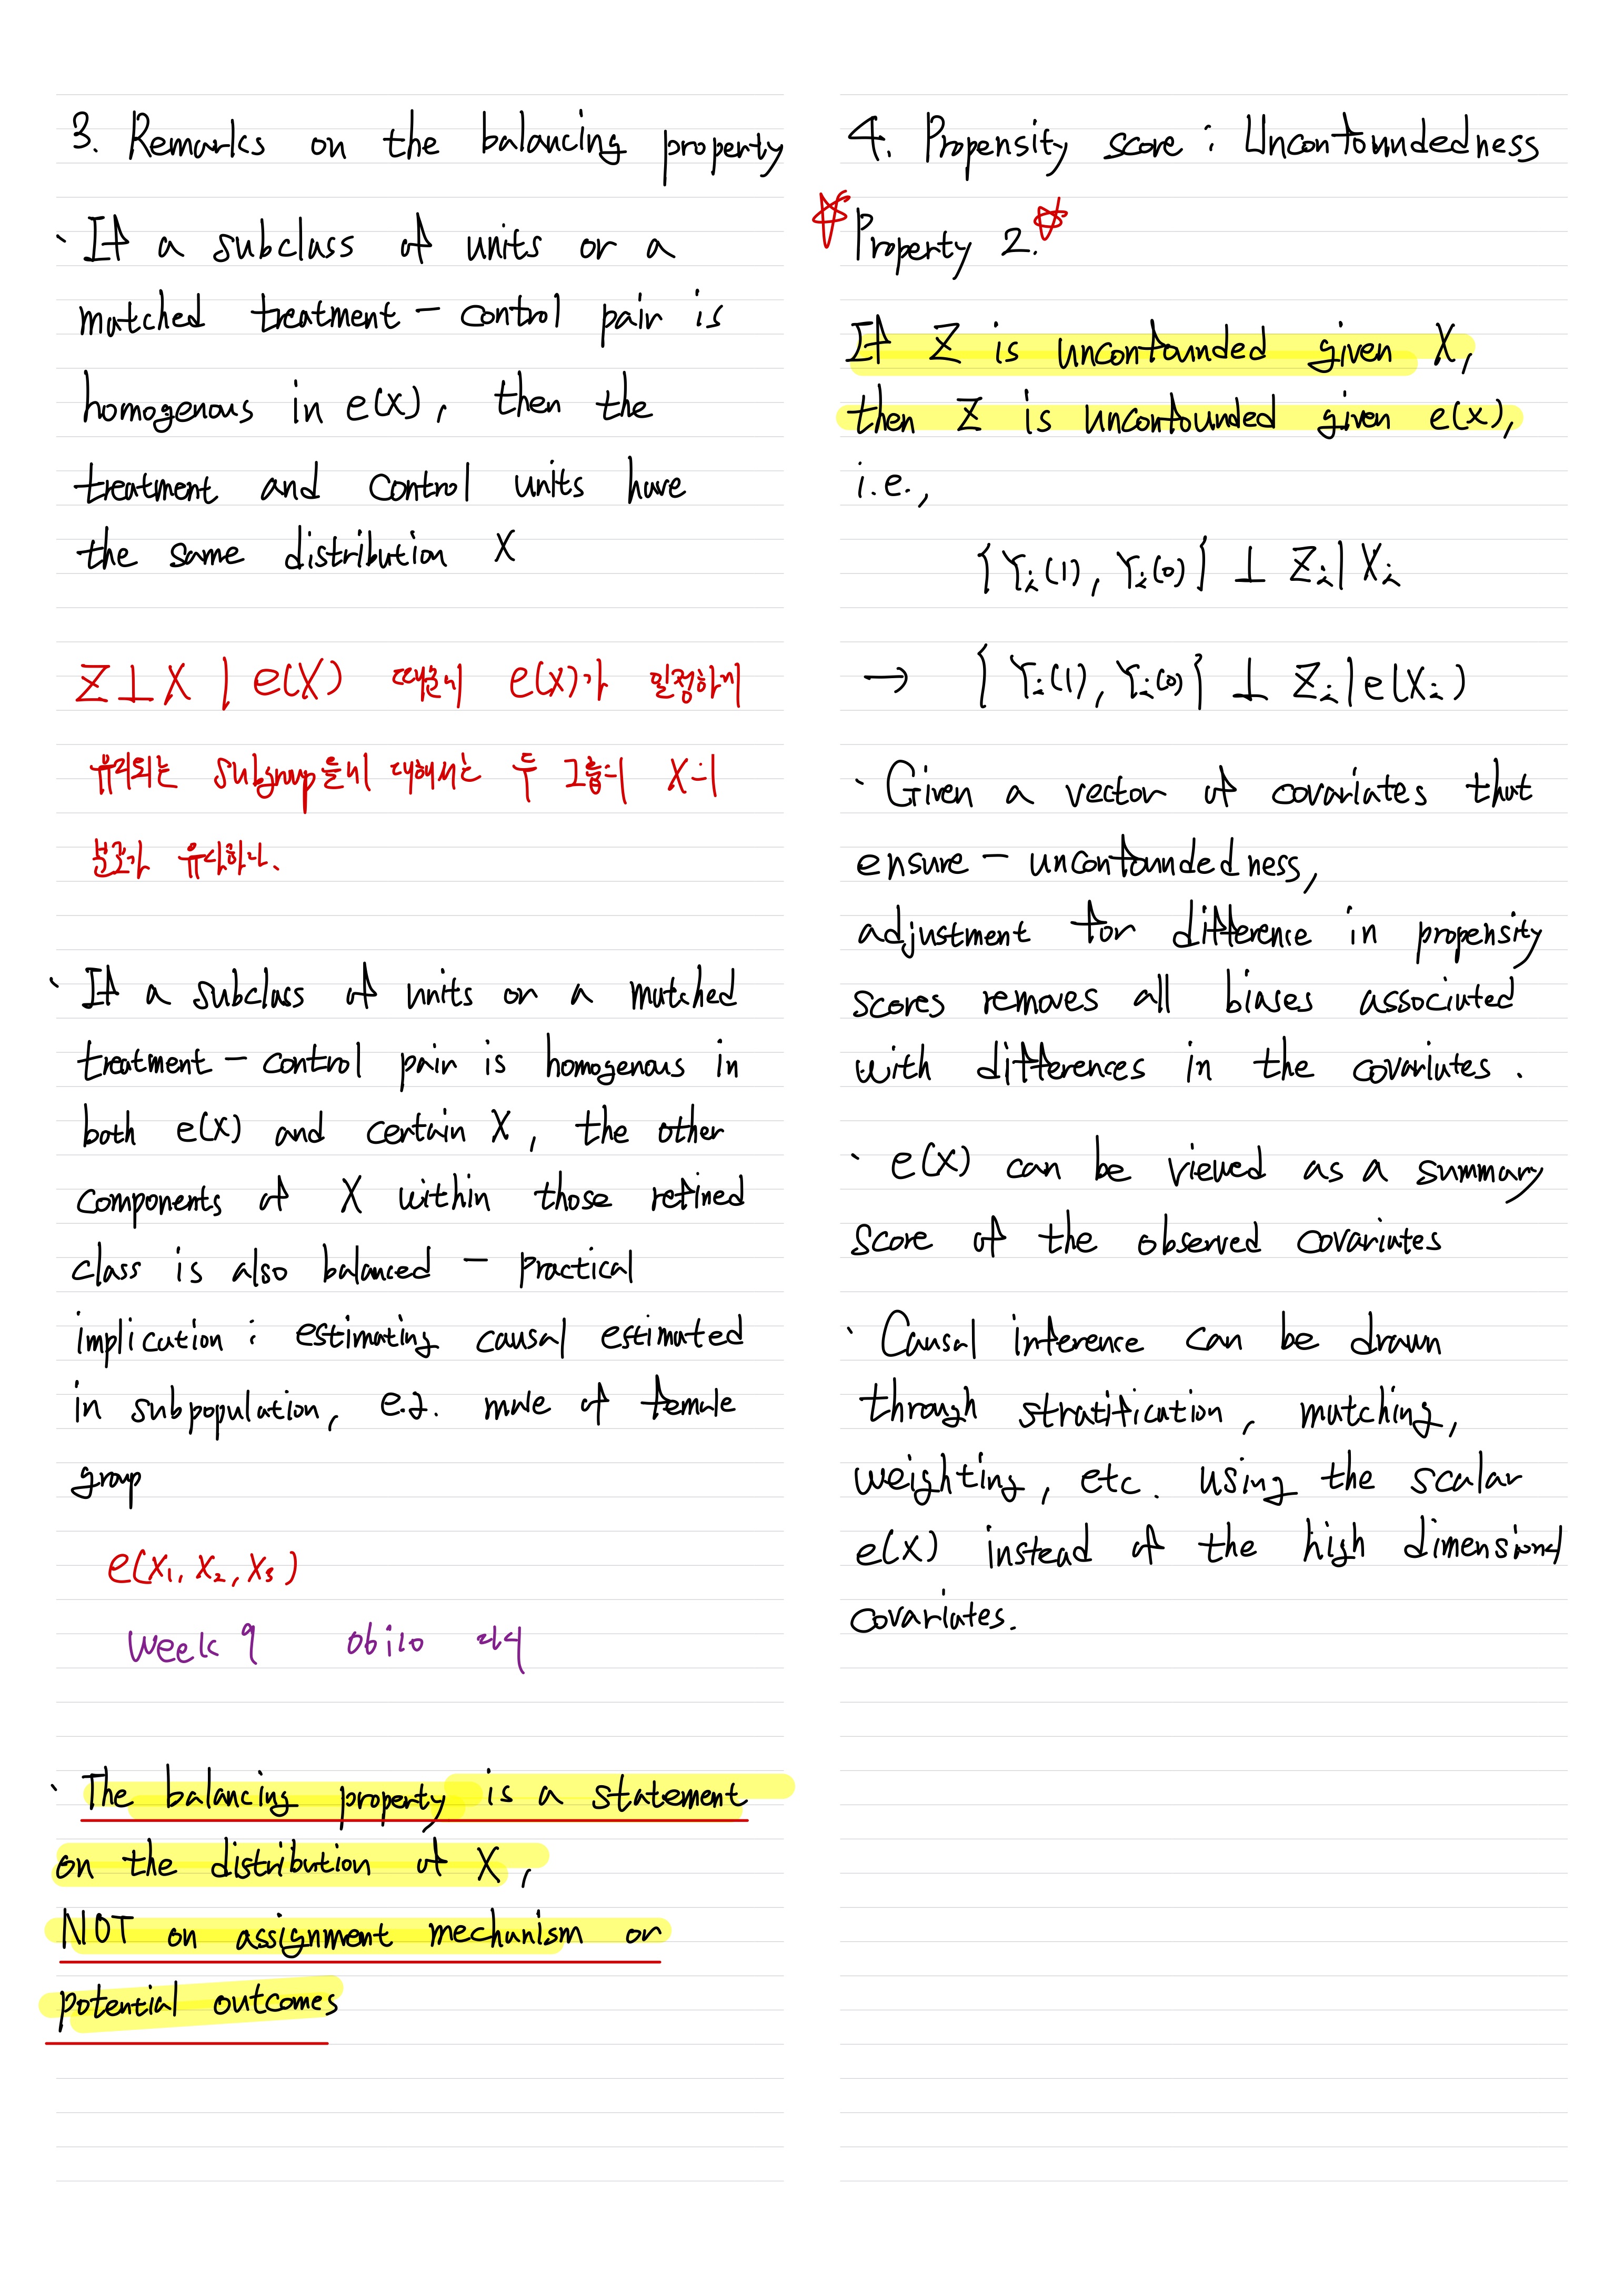 3. Remarks on the balancing property
· If a subclass of units or a
matched treatment - control pair is
homogenous in e(X), then the
treatment and control units have
the same distribution X
Z ⊥ X | e(X) 때문에 e(X)가 일정하게
유지되는 subgroup들에 대해서는 두 그룹의 X의
분포가 유사하다.
· If a subclass of units or a matched
treatment - control pair is homogenous in
both e(X) and certain X, the other
components of X within those refined
class is also balanced - practical
implication : estimating causal estimated
in subpopulation, e.g. male of female
group
e(X₁, X₂, X₃)
week 9
· The balancing property is a statement
on the distribution of X,
NOT on assignment mechanism or
potential outcomes
4. Propensity score : Unconfoundedness
Property 2.
If Z is unconfounded given X,
then Z is unconfounded given e(x),
i.e.,
{Yᵢ(1), Yᵢ(0)} ⊥ Zᵢ | Xᵢ
→ {Yᵢ(1), Yᵢ(0)} ⊥ Zᵢ | e(Xᵢ)
· Given a vector of covariates that
ensure - unconfoundedness,
adjustment for difference in propensity
scores removes all biases associated
with differences in the covariates.
· e(X) can be viewed as a summary
score of the observed covariates
· Causal inference can be drawn
through stratification, matching,
weighting, etc. using the scalar
e(X) instead of the high dimensional
covariates.